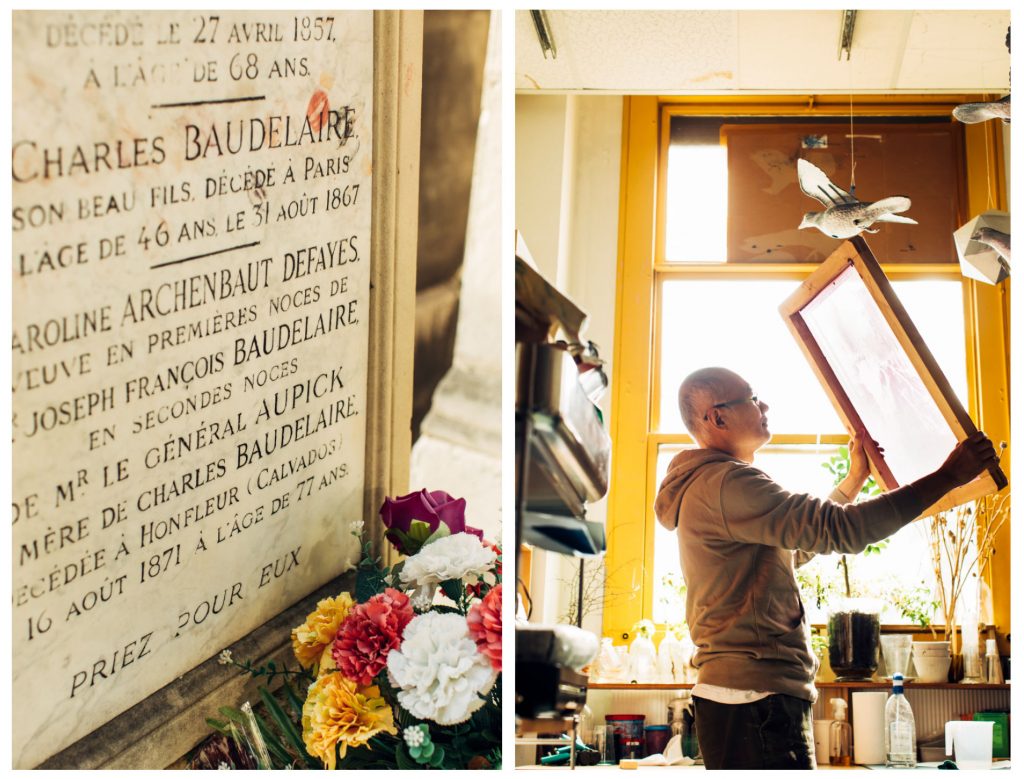 DÉCÉDÉ LE 27 AVRIL 1857,
À L'ÂGE DE 68 ANS.
CHARLES BAUDELAIRE,
SON BEAU FILS, DÉCÉDÉ À PARIS
L'ÂGE DE 46 ANS, LE 31 AOÛT 1867
AROLINE ARCHENBAUT DEFAYES,
VEUVE EN PREMIÈRES NOCES DE
R JOSEPH FRANÇOIS BAUDELAIRE,
EN SECONDES NOCES
DE MR LE GÉNÉRAL AUPICK
MÈRE DE CHARLES BAUDELAIRE,
DÉCÉDÉE À HONFLEUR (CALVADOS)
16 AOÛT 1871 À L'ÂGE DE 77 ANS.
PRIEZ POUR EUX